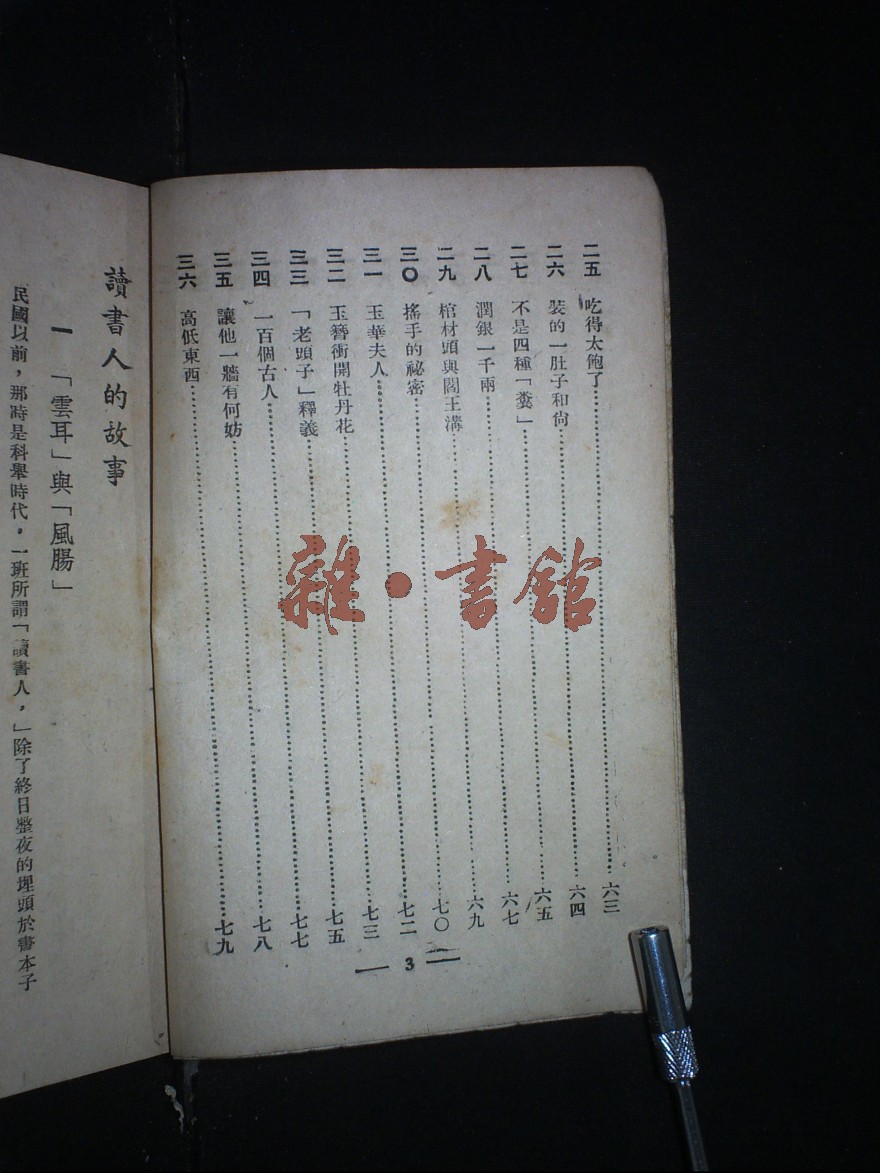 二五　吃得太飽了……六三
二六　裝的一肚子和尙……六四
二七　不是四種「糞」……六五
二八　潤銀一千兩……六七
二九　棺材頭與閻王溝……六九
三〇　搖手的祕密……七〇
三一　玉華夫人……七二
三二　玉簪衝開牡丹花……七三
三三　「老頭子」釋義……七五
三四　一百個古人……七七
三五　讓他一牆有何妨……七八
三六　高低東西……七九
3
讀書人的故事
一　「雲耳」與「風腸」
民國以前，那時是科舉時代，一班所謂「讀書人，」除了終日整夜的埋頭於書本子
雜·書館